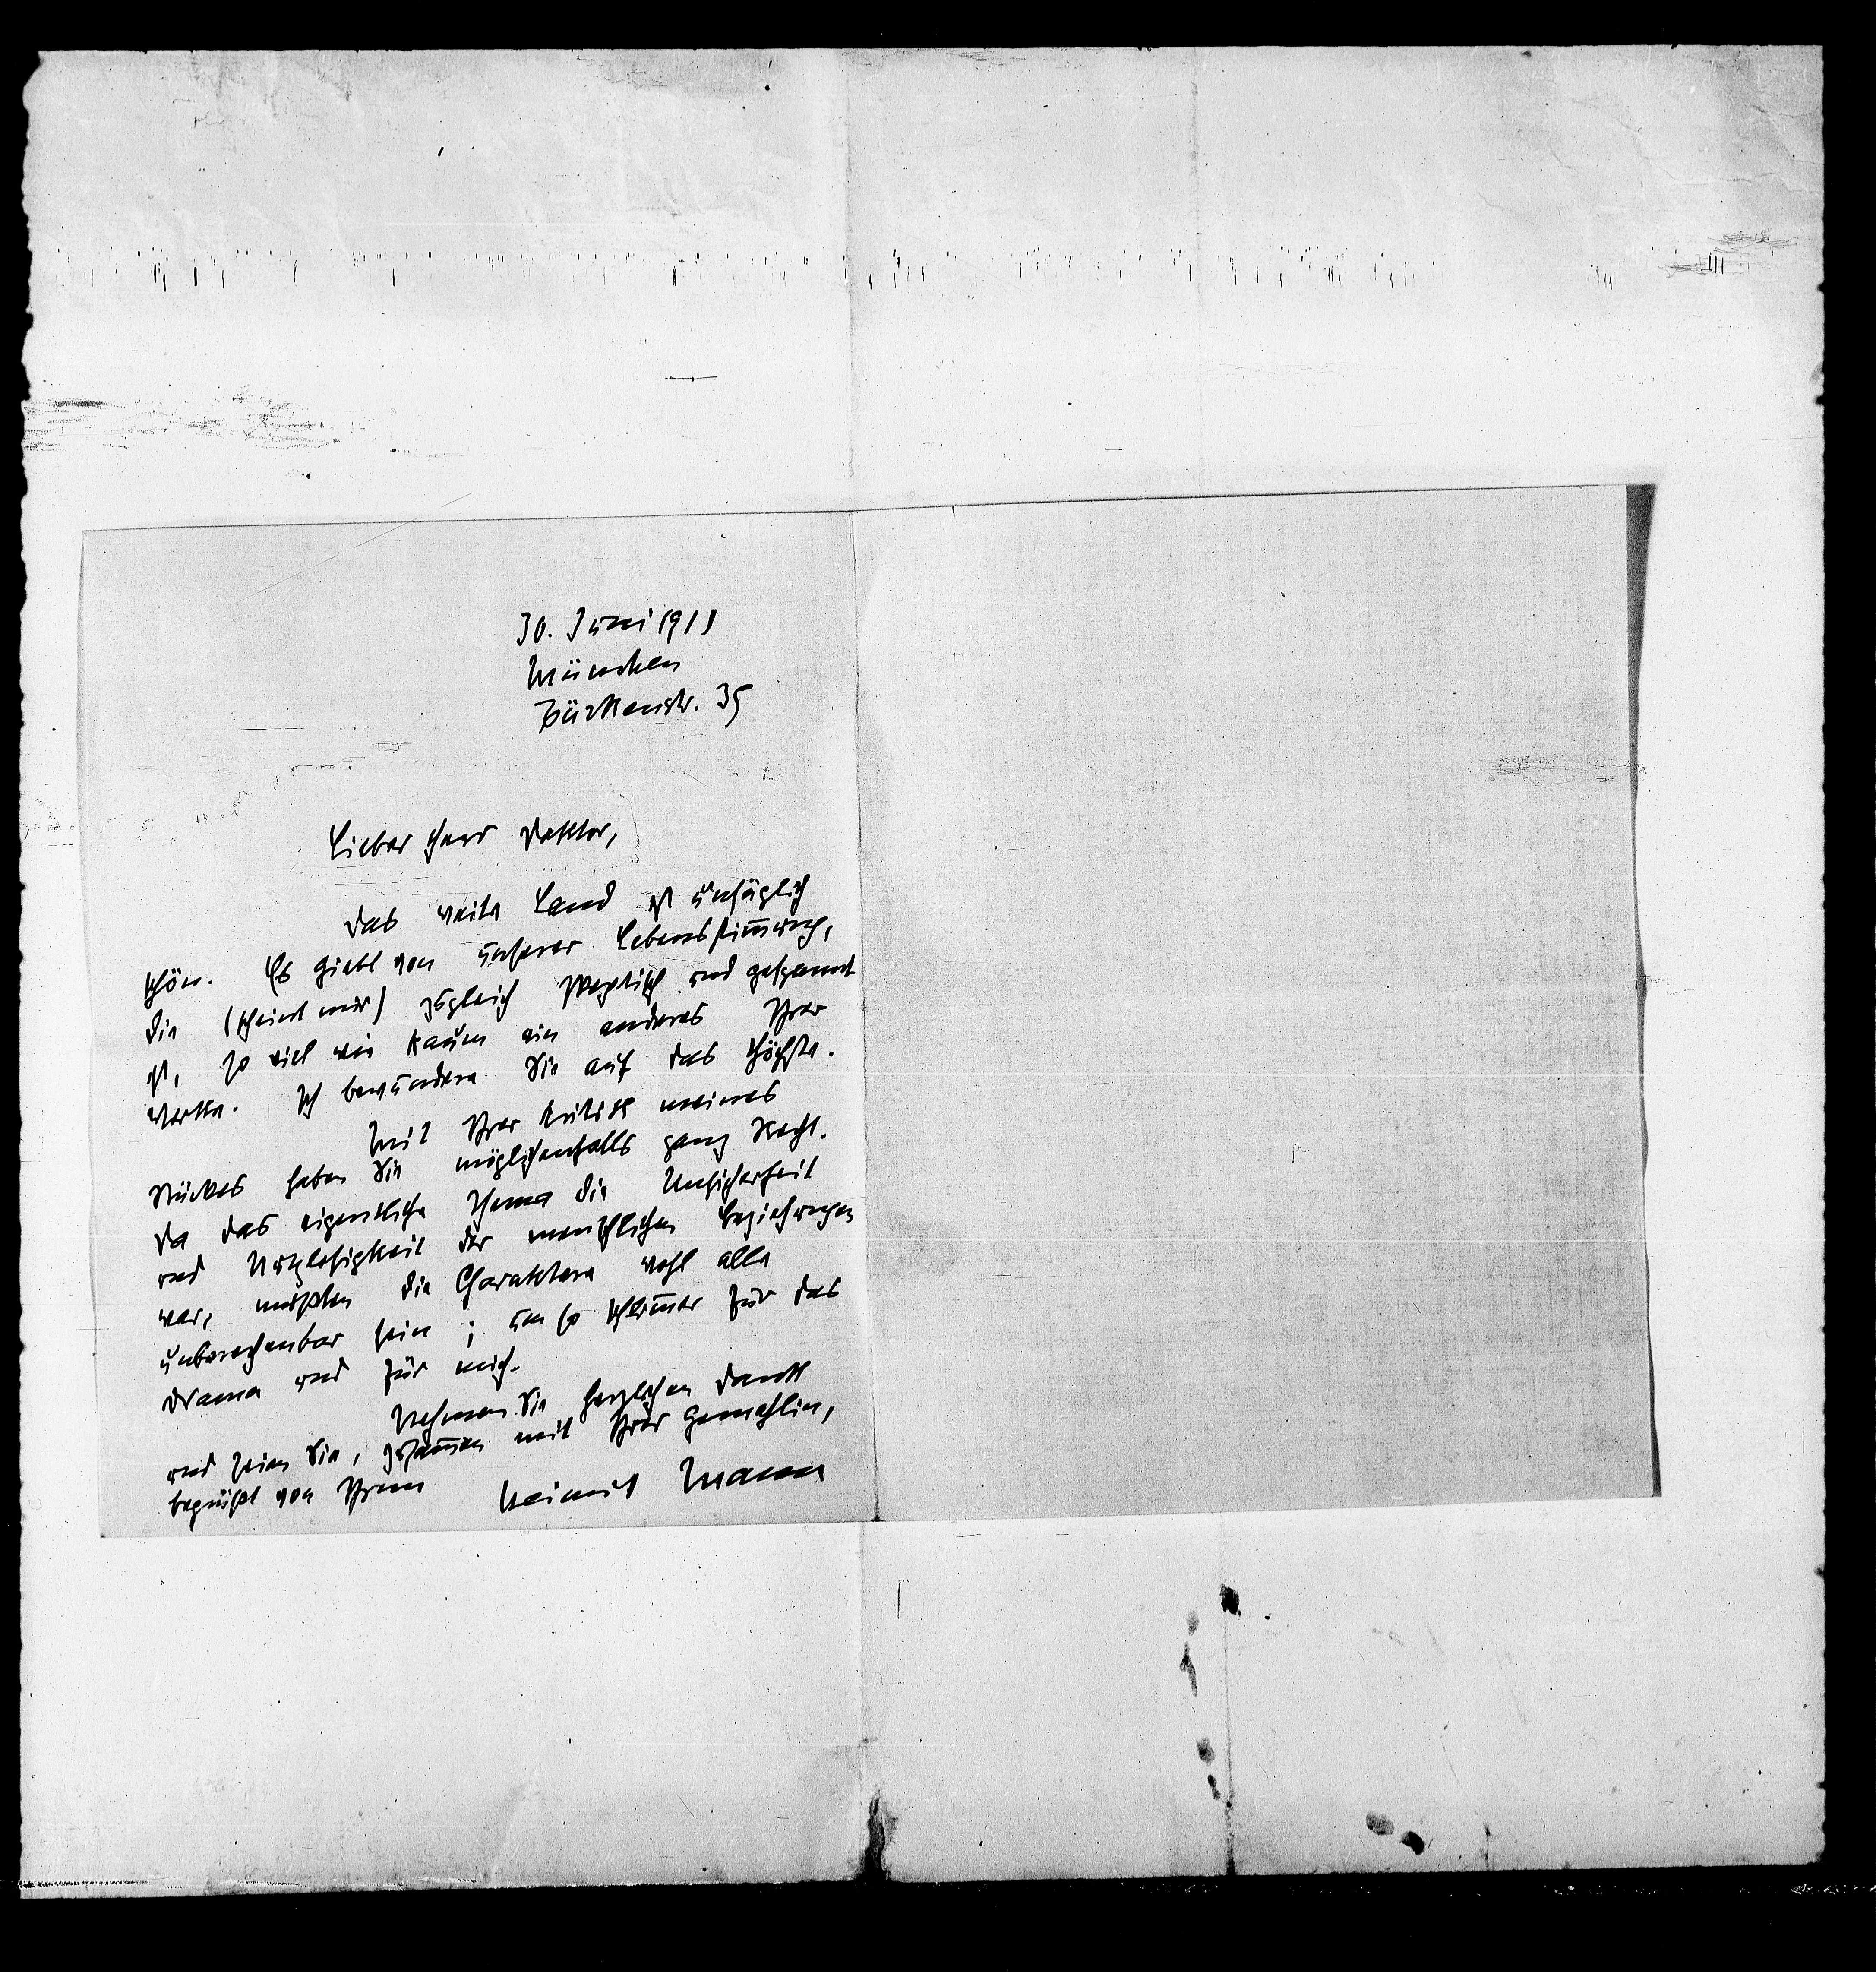 30. Juni 1911
München
Türkenstr. 35
Lieber Herr Doktor,
das weite Land ist unsäglich
schön. Es giebt von unserer Lebensstim̄ung,
die (scheint mir) zugleich skeptisch und gespannt
ist, so viel wie kaum ein anderes Ihrer
Werke. Ich bewundere Sie auf das Höchste.
Mit Ihrer Kritik meines
Stückes haben Sie möglichenfalls ganz Recht.
Da das eigentliche Thema die Unsicherheit
und Nutzlosigkeit der menschlichen Beziehungen
war, mußten die Charaktere wohl alle
unberechenbar sein; um so schlim̄er für das
Drama und für mich.
Nehmen Sie herzlichen Dank
und seien Sie, zusam̄en mit Ihrer Gemahlin,
begrüßt von Ihrem
Heinrich Mann